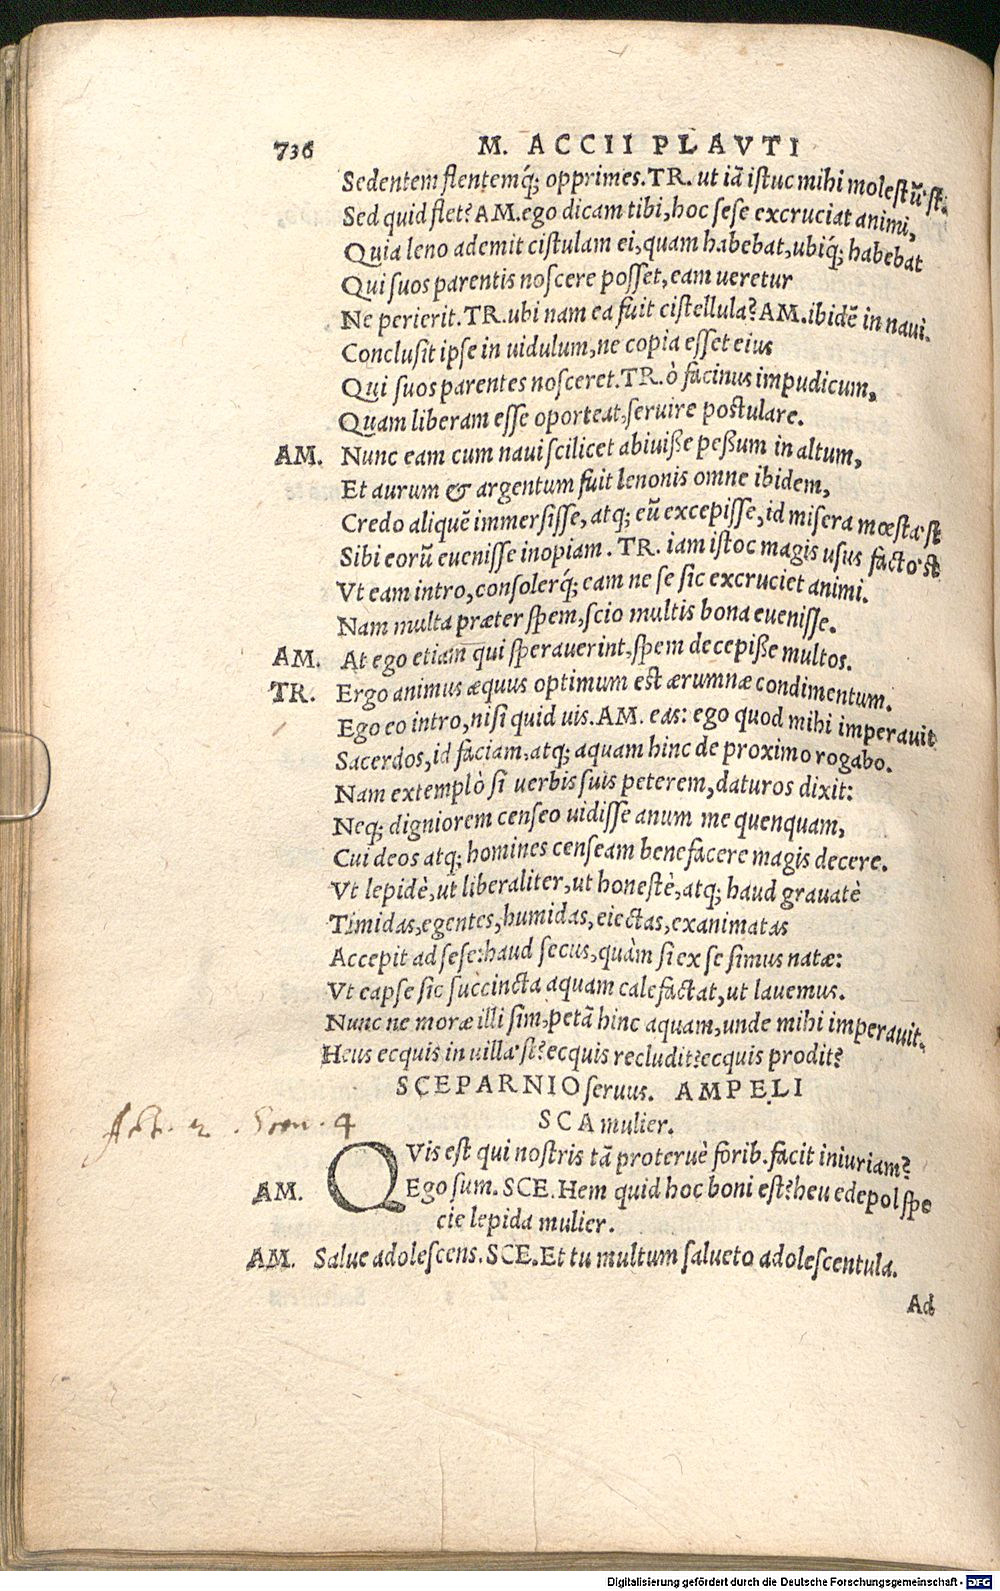 736 M. ACCII PLAVTI
Sedentem flentemq́; opprimes.TR. ut iā istuc mihi molestū'st.
Sed quid flet? AM.ego dicam tibi, hoc sese excruciat animi,
Quia leno ademit cistulam ei, quam habebat, ubiq́; habebat
Qui suos parentis noscere posset, eam ueretur
Ne perierit.TR.ubi nam ea fuit cistellula? AM.ibidē in naui.
Conclusit ipse in uidulum, ne copia esset eius
Qui suos parentes nosceret.TR.ò facinus impudicum,
Quam liberam esse oporteat, seruire postulare.
AM. Nunc eam cum naui scilicet abiuiße peßum in altum,
Et aurum & argentum fuit lenonis omne ibidem,
Credo aliquē immersisse, atq; eū excepisse, id misera mœsta'st
Sibi eorū euenisse inopiam. TR. iam istoc magis usus facto'st
Vt eam intro, consolerq́; eam ne se sic excruciet animi.
Nam multa præter spem, scio multis bona euenisse.
AM. At ego etiam qui sperauerint, spem decepiße multos.
TR. Ergo animus æquus optimum est ærumnæ condimentum.
Ego eo intro, nisi quid uis.AM. eas: ego quod mihi imperauit
Sacerdos, id faciam, atq; aquam hinc de proximo rogabo.
Nam extemplò si uerbis suis peterem, daturos dixit:
Neq; digniorem censeo uidisse anum me quenquam,
Cui deos atq; homines censeam benefacere magis decere.
Vt lepidè, ut liberaliter, ut honestè, atq; haud grauatè
Timidas, egentes, humidas, eiectas, exanimatas
Accepit ad sese: haud secus, quàm si ex se simus natæ:
Vt eapse sic succincta aquam calefactat, ut lauemus.
Nunc ne moræ illi sim, petā hinc aquam, unde mihi imperauit.
Heus ecquis in uilla'st? ecquis recludit? ecquis prodit?
SCEPARNIO seruus. AMPELI
SCA mulier.
Act. 2. Scen. 4
QVis est qui nostris tā proteruè forib. facit iniuriam?
AM. Ego sum. SCE. Hem quid hoc boni est? heu edepol spe
cie lepida mulier.
AM. Salue adolescens. SCE. Et tu multum salueto adolescentula.
Ad
Digitalisierung gefördert durch die Deutsche Forschungsgemeinschaft - DFG